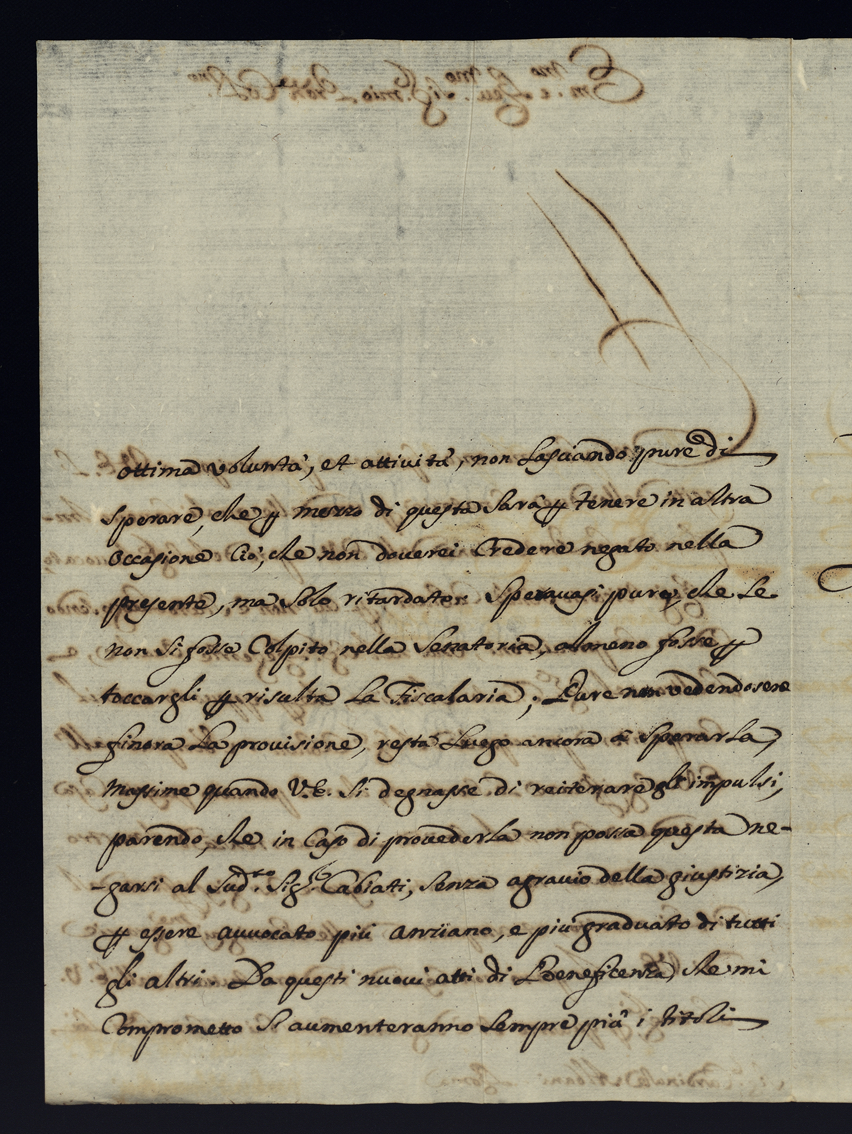 ottima voluntà, et attività, non lasciando pure di
sperare, che p mezzo di questa sarà p tenere in altra
occasione ciò, che non doverei credere negato nella
presente, ma solo ritardato: Speravasi pure, che se
non si fosse colpito nella Senatoria, almeno fosse p
toccargli p risulta la Fiscalaria; Pure non vedendosene
finora la provisione, resta luogo ancora a sperarla,
massime quando V.E. si degnasse di reiterare gl'impulsi,
parendo, che in caso di provederla non possa questa ne-
-garsi al sud.to Sig.r Cabiati, senza agravio della giustizia,
p essere avvocato più anziano, e più graduato di tutti
gli altri. Da questi nuovi atti di Beneficenza, che mi
comprometto si aumenteranno sempre più i titoli